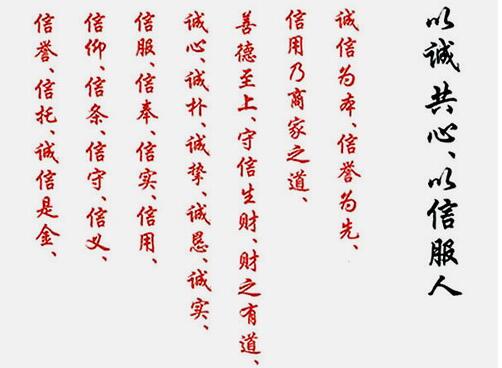 以诚共心、以信服人
诚信为本、信誉为先、
信用乃商家之道、
善德至上、守信生财、财之有道、
诚心、诚朴、诚挚、诚恳、诚实、
信服、信奉、信实、信用、
信仰、信条、信守、信义、
信誉、信托、诚信是金、